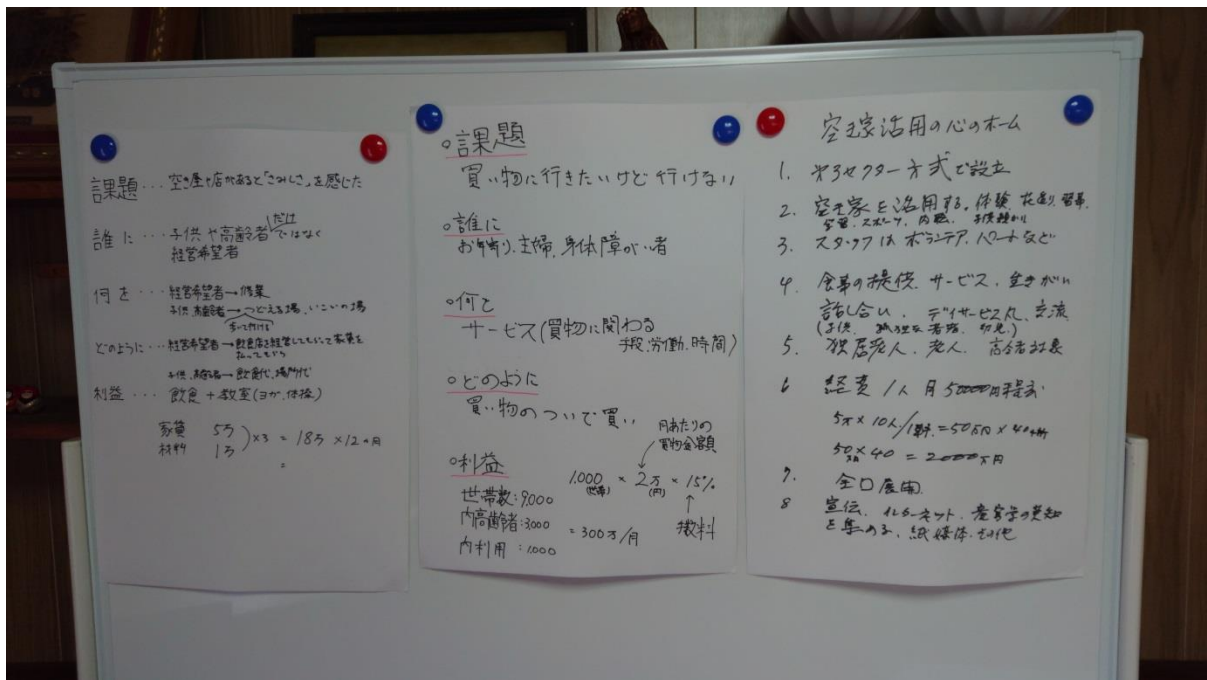 課題・・・空き屋や店があると「さみしさ」を感じた
誰に・・・子供や高齢者だけではなく
経営希望者
何を・・・経営希望者→修業
子供、高齢者→つどえる場、いこいの場
どのように・・・経営希望者→飲食店を経営してもらって家賃を
払ってもらう
子供、高齢者→飲食代、場所代
利益・・・飲食+教室(ヨガ、体操)
家賃 5万
材料 1万
)×3 = 18万 ×12ヶ月
=
○課題
買い物に行きたいけど行けない
○誰に
お年寄り、主婦、身体障がい者
○何を
サービス(買物に関わる
手段、労働、時間)
○どのように
買い物のついで買い
○利益
世帯数:9,000
内高齢者:3,000
内利用:1,000
月あたりの
買物金額
1,000 × 2万 × 15%
(世帯) (円)
= 300万/月
手数料
空き家活用の心のホーム
1. 第3セクター方式で設立
2. 空き家を活用する。体験、花造り、習事、
学習、スポーツ、内職、子供預かり
3. スタッフはボランテア、パートなど
4. 食事の提供、サービス、生きがい
話し合い、デイサービス、交流
5. 独居老人、老人、高令者対象
6 経費 1人 月50000円程度
5万×10人/1軒=50万円×40ヶ所
50万×40 = 2000万円
7. 全国展開
8 宣伝、インターネット、産官学の英知
を集める、紙媒体、その他